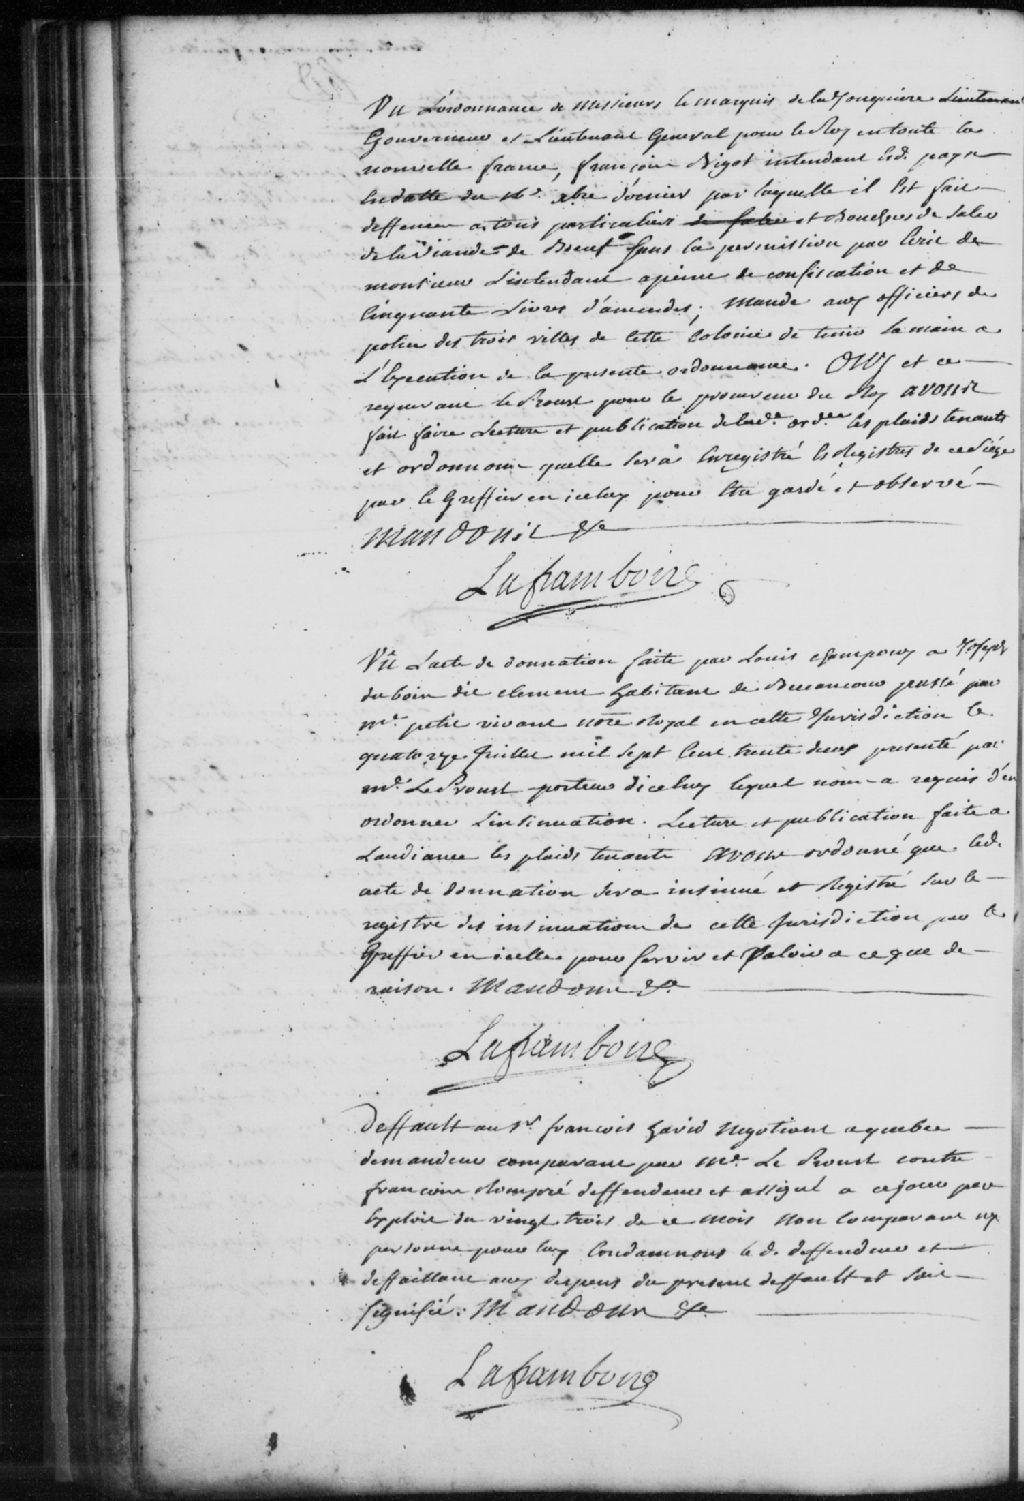 Vu L'ordonnance de Messieurs le marquis de la Jonquiere Lieutenant
Gouverneur et Lieutenant General pour le Roy en toute la
nouvelle france, françois Bigot intendant Ed. pays
En datte du 16e. xbre dernier par laquelle il Est fait
deffence a tous particuliers de saler et Bouchers de saler
de la viande de Boeuf sans la permission par Ecrit de
monsieur L'intendant a peine de confiscation et de
Cinquante Livres d'amendes; Mande aux officiers de
police des trois villes de Cette Colonie de tenir la main a
L'Execution de la presente ordonnance. OUY et ce
requerant le Proust pour le procureur du Roy avons
fait faire Lecture et publication de lad. ord.ce les plaids tenants
et ordonnons quelle sera Enregistré Es Registres de ce Siége
par le Greffier en iceluy pour Etre gardé et observé
Mandons &a
Laframboise
Vû L'acte de donnation faite par Louis champoux a Joseph
dubois dit clement habitant de Becancour passé par
Me. petit vivant notre Royal en cette Jurisdiction le
quatorze Juillet mil sept Cent trente deux presenté par
Me. Le Proust porteur diceluy lequel nous a requis d'en
ordonner L'insinuation. Lecture et publication faite a
Laudiance les plaids tenants avons ordonné que led.
acte de donnation sera insinué et Registré sur le
registre des insinuations de cette Jurisdiction par le
Greffier en icelle pour servir et Valoir a ce que de
raison. Mandons &a
Laframboise
Deffault au Sr. francois havid negotiant a quebec
demandeur comparant par Me. Le Proust contre
francois Rompré deffendeur et assigné a ce jour par
Exploit du vingt trois de ce mois non Comparant ny
personne pour luy Condamnons le d. deffendeur et
deffaillant aux depens du present deffault et soit
signifié: Mandons &a
Laframboise